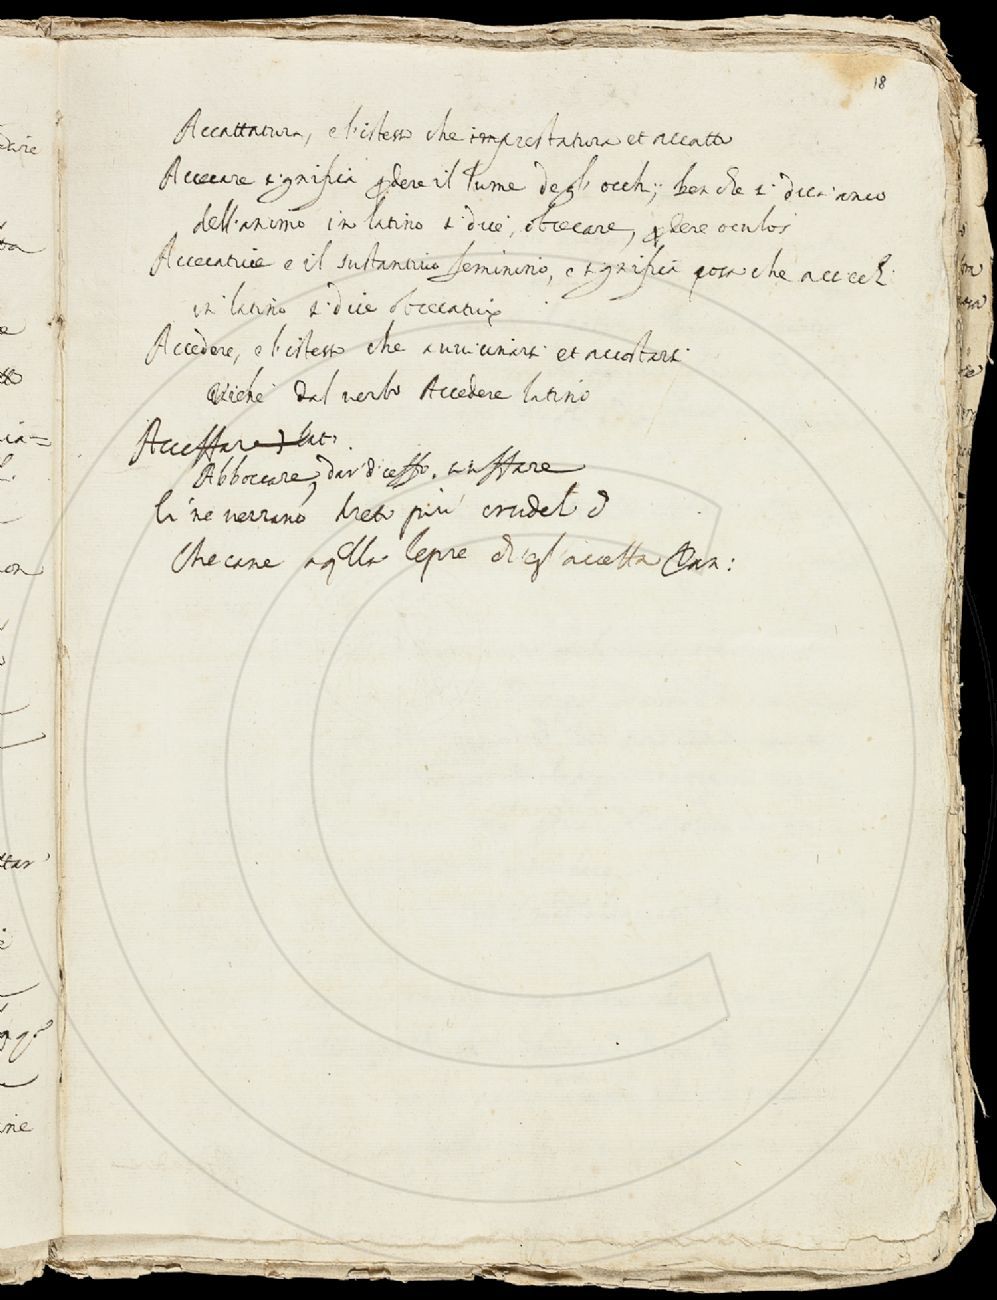 18
Accattatura, e l'istesso che imprestatura et accatto
Accecare significa perdere il lume degl'occhi; benche si dica anco
dell'animo in latino si dice, obcecare, perdere oculos
Accecatrice e il sustantivo feminino, e significa cosa che accechi
in latino si dice obcecatrix
Accedere, e l'istesso che avvicinarsi et accostarsi
viene dal verbo Accedere latino
Acceffare lat.
Abboccare, dar di ceffo,
Ei ne verrano dreto più crudeli
Che cane a q.lla lepre ch'egl'acceffa Dan: